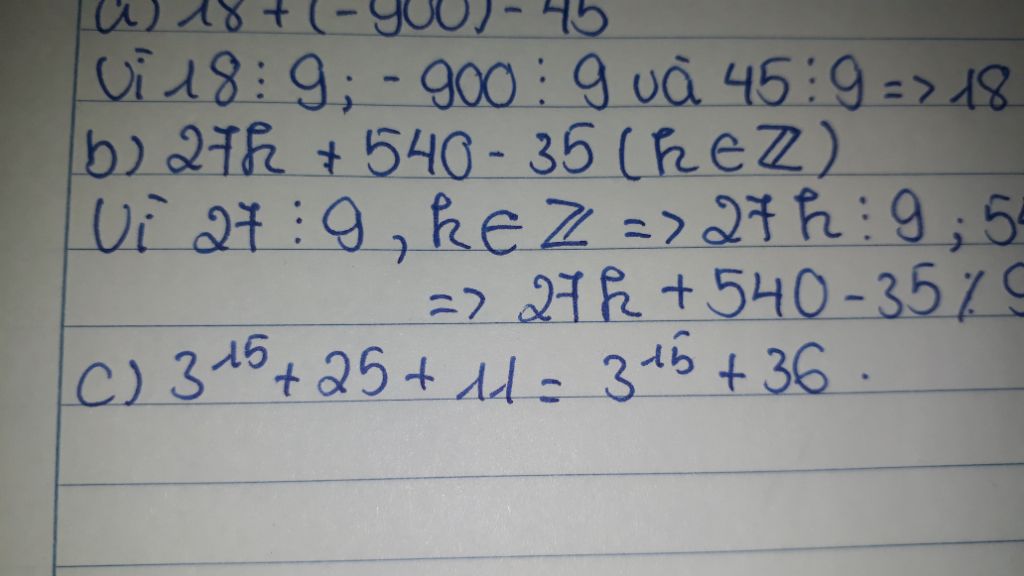 a) 18 + (-900) - 45
Vì 18 ⋮ 9; -900 ⋮ 9 và 45 ⋮ 9 => 18
b) 27k + 540 - 35 (k ∈ ℤ)
Vì 27 ⋮ 9, k ∈ ℤ => 27k ⋮ 9; 54
=> 27k + 540 - 35 ⋮̸ 9
c) 3¹⁵ + 25 + 11 = 3¹⁵ + 36.